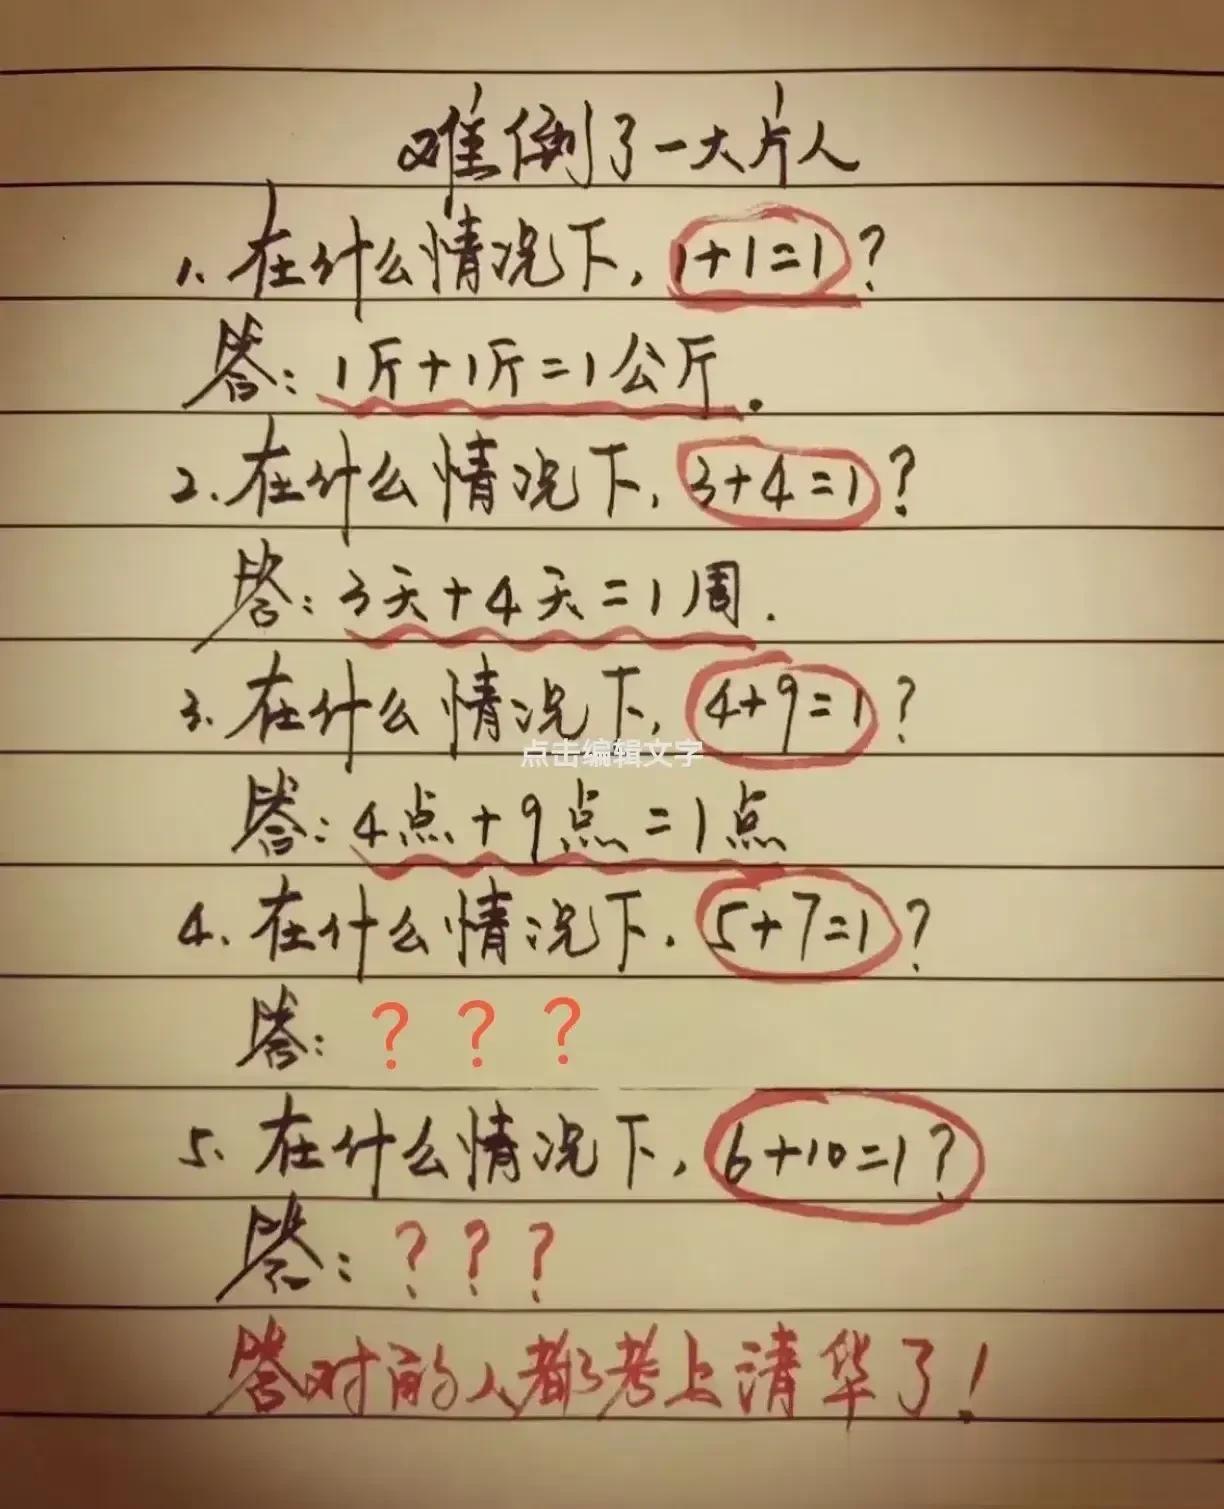 难倒了一大片人
1.在什么情况下,1+1=1?
答:1斤+1斤=1公斤.
2.在什么情况下,3+4=1?
答:3天+4天=1周.
3.在什么情况下,4+9=1?
点击编辑文字
答:4点+9点=1点
4.在什么情况下.5+7=1?
答:???
5.在什么情况下,6+10=1?
答:???
答对的人都考上清华了!